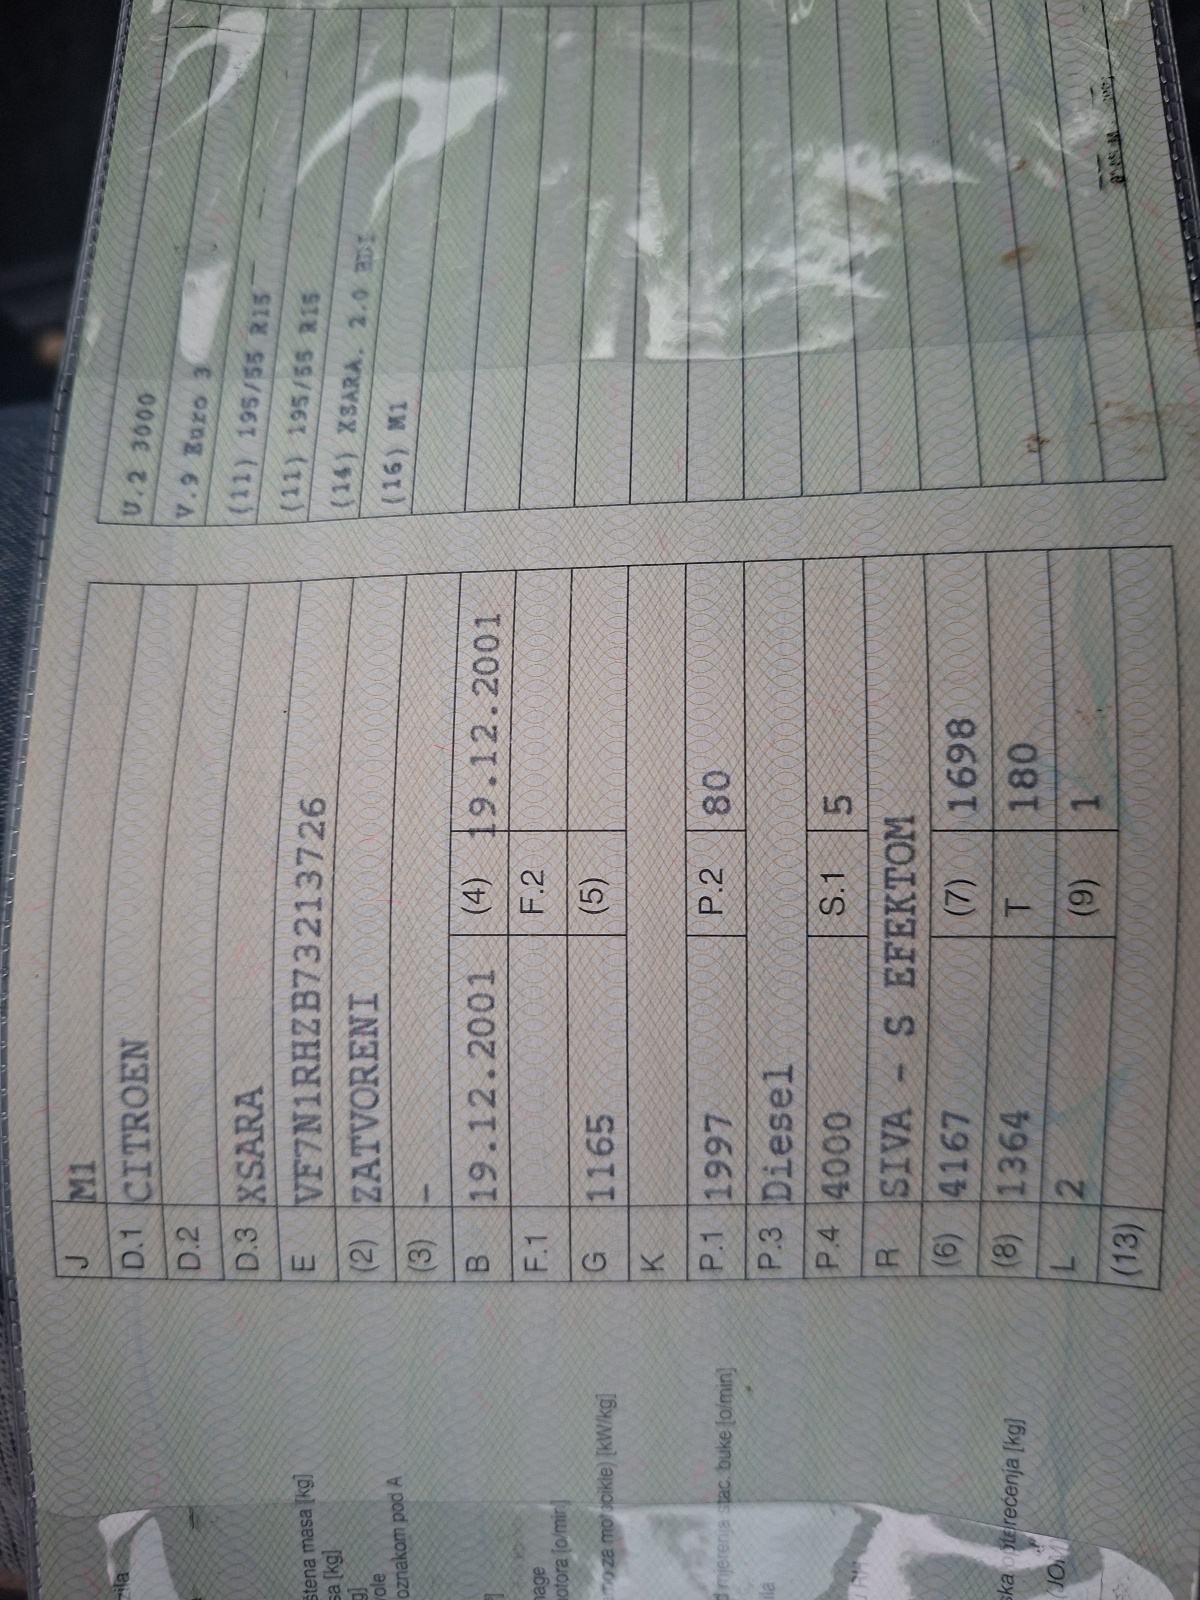 J M1
D.1 CITROEN
D.2
D.3 XSARA
E VF7N1RHZB73213726
(2) ZATVORENI
(3) -
B 19.12.2001 (4) 19.12.2001
F.1 F.2
G 1165 (5)
K
P.1 1997 P.2 80
P.3 Diesel
P.4 4000 S.1 5
R SIVA - S EFEKTOM
(6) 4167 (7) 1698
(8) 1364 T 180
L 2 (9) 1
(13)
U.2 3000
V.9 Euro 3
(11) 195/55 R15
(11) 195/55 R15
(14) XSARA. 2.0 HDI
(16) M1
masa [kg]
[kg]
oznakom pod A
[o/min]
za [kW/kg]
mjerenja stac. buke [o/min]
[kg]